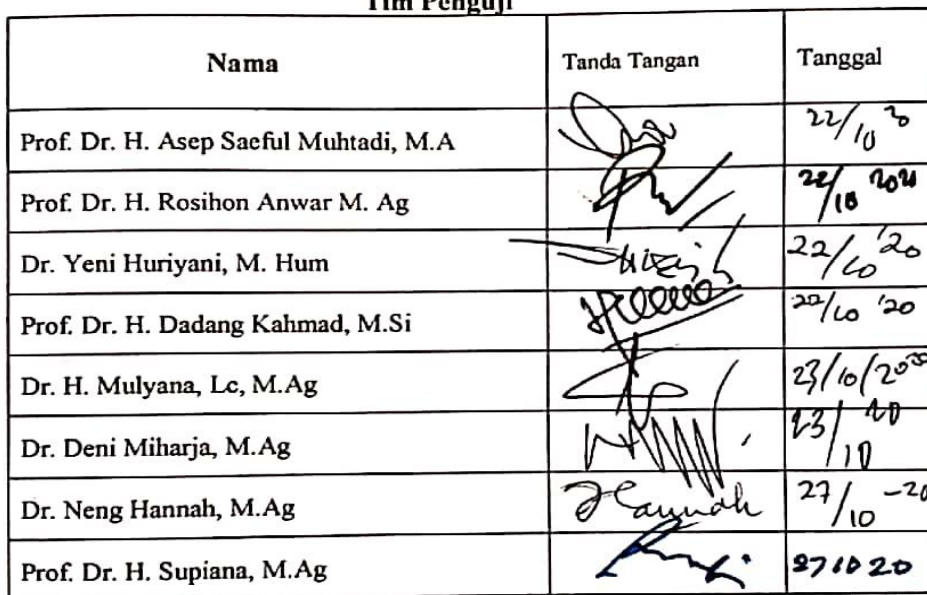 Tim Penguji
Nama Tanda Tangan Tanggal
Prof. Dr. H. Asep Saeful Muhtadi, M.A 22/10
Prof. Dr. H. Rosihon Anwar M. Ag 22/10
Dr. Yeni Huriyani, M. Hum 22/10 '20
Prof. Dr. H. Dadang Kahmad, M.Si 22/10 '20
Dr. H. Mulyana, Lc, M.Ag 23/10/2020
Dr. Deni Miharja, M.Ag 23/10 20
Dr. Neng Hannah, M.Ag Hannah 27/10 -20
Prof. Dr. H. Supiana, M.Ag 271020